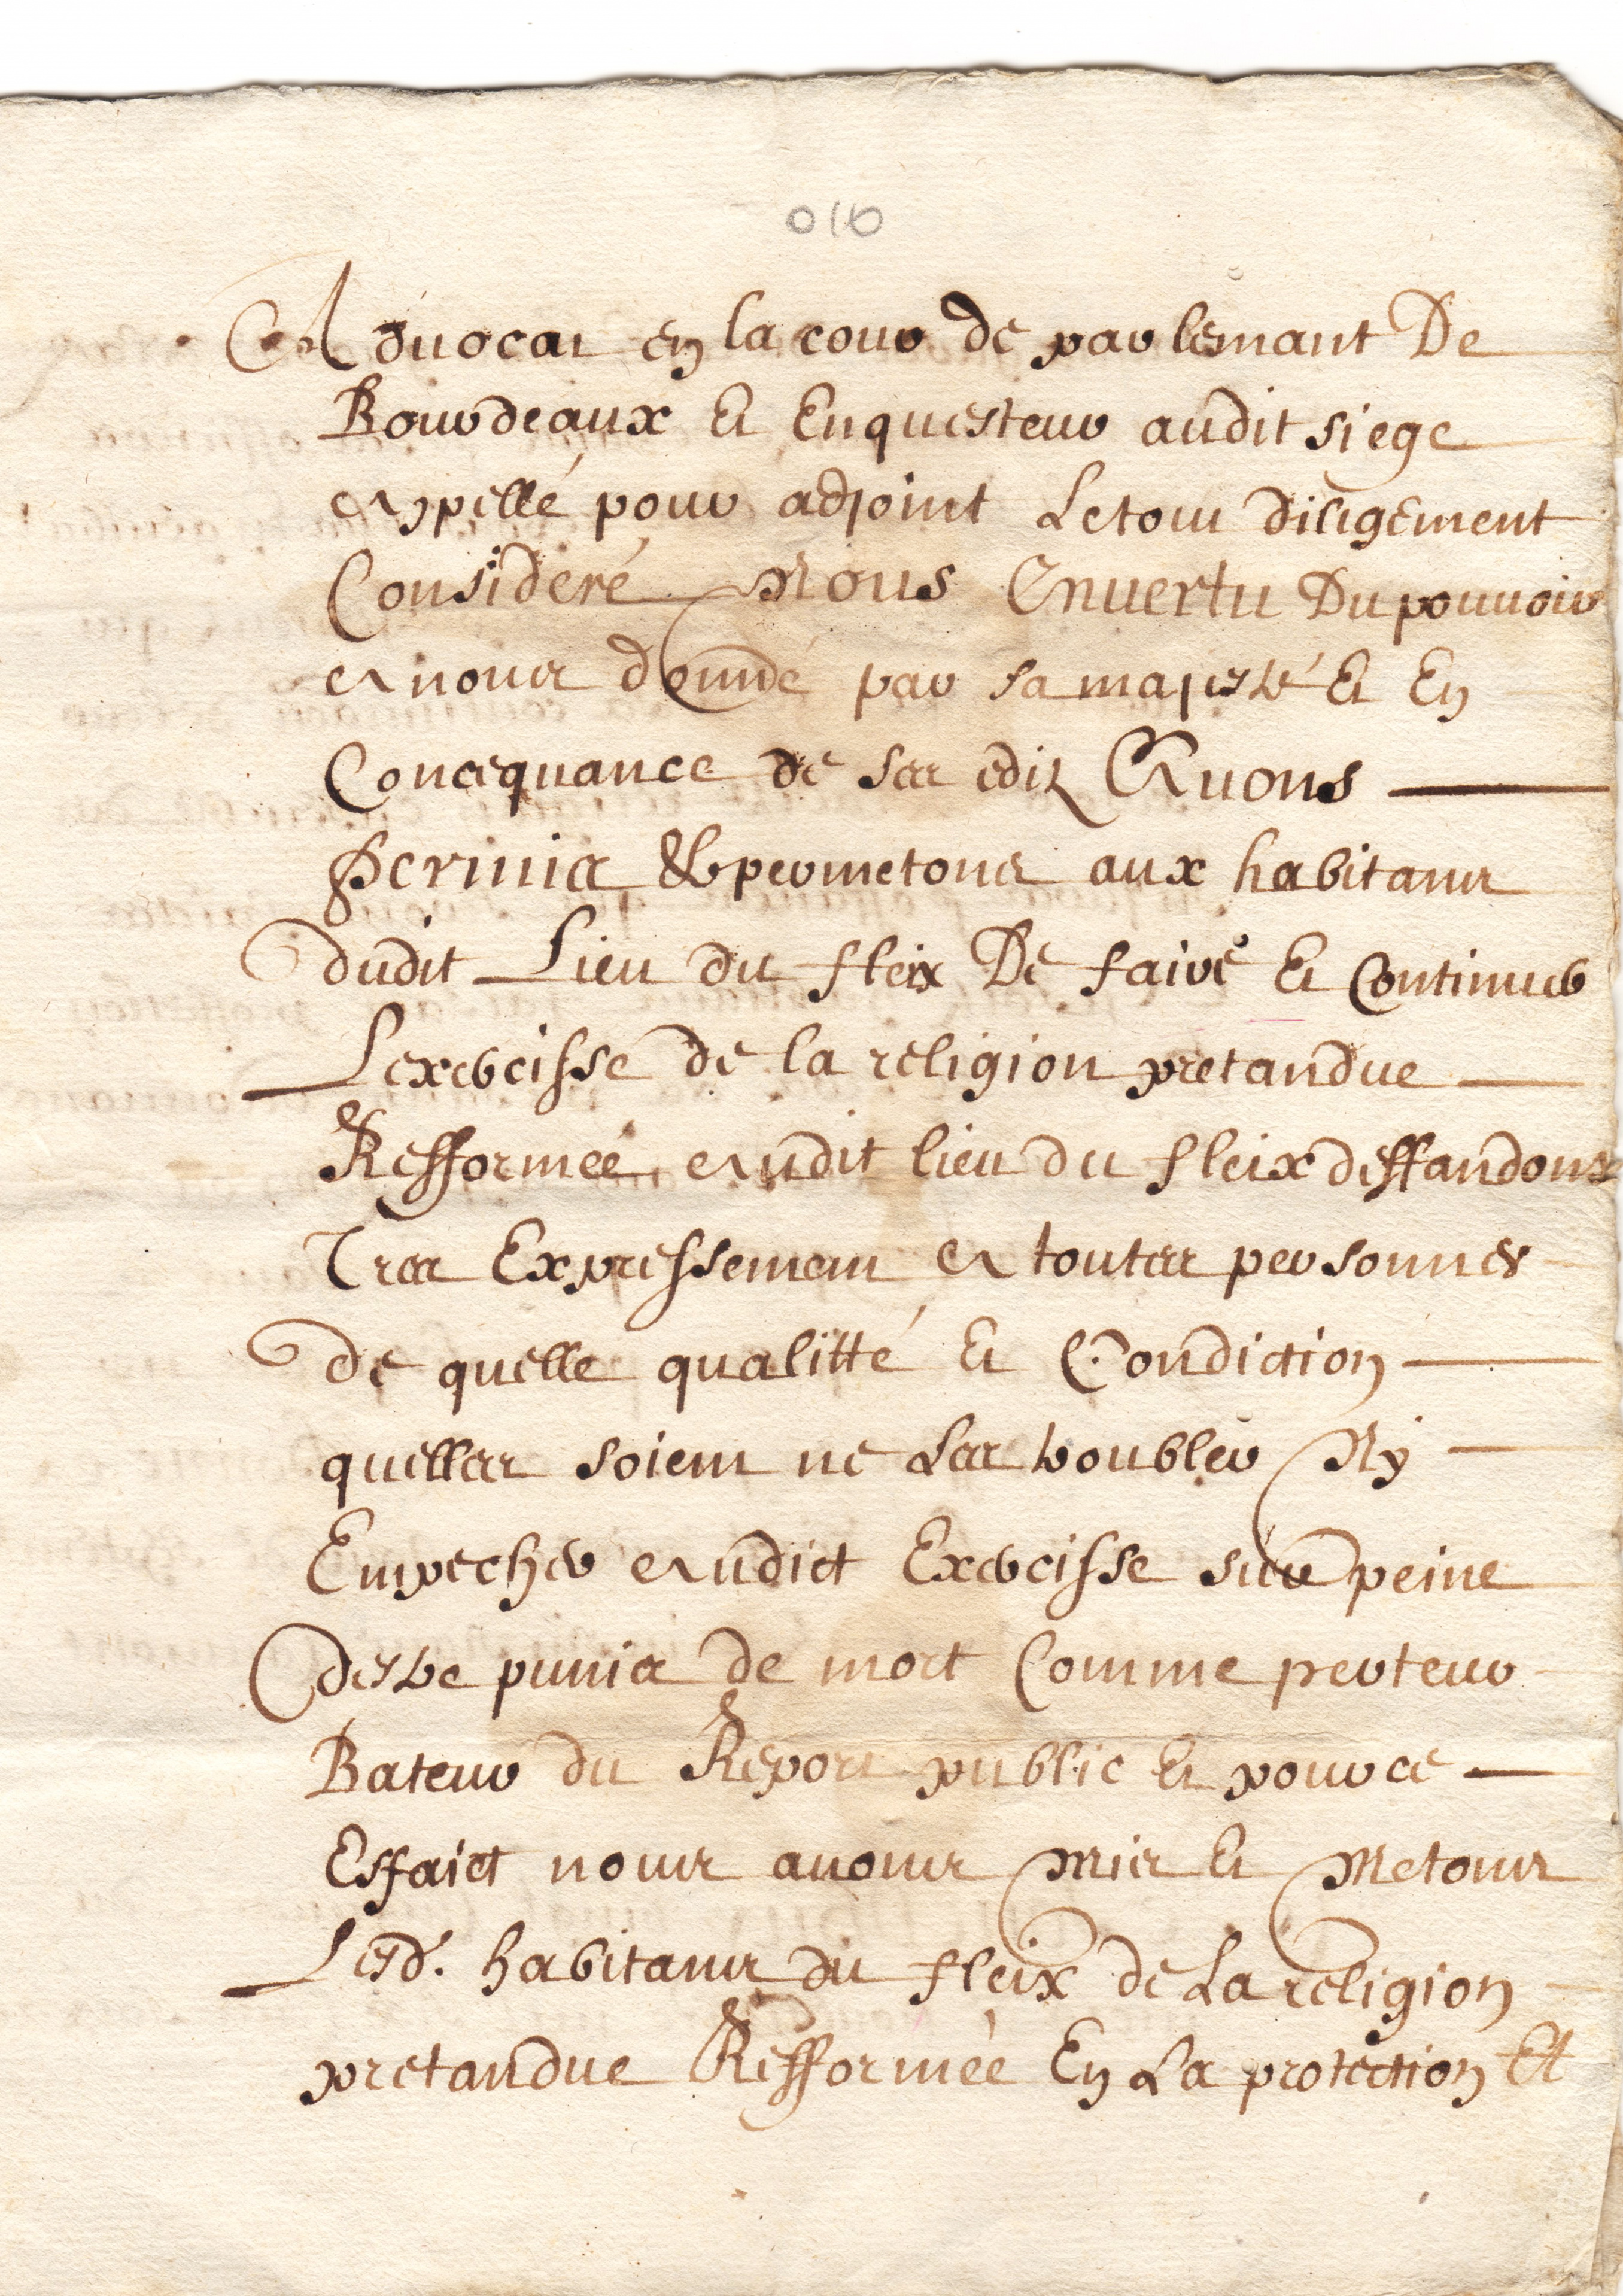 016
Aduocat en la cour de parlemant De
Bourdeaux Et Enquesteur audit siege
Appellé pour adjoint Letout diligement
Consideré Nous Envertu Du pouuoir
A nous donné par sa majesté Et En
Concequance de ses editz Auons
Permis & permetons aux habitans
dudit Lieu du fleix De faire Et Continuer
Lexercisse de la religion pretandue
Refformée Audit lieu du fleix deffandons
Tres Expressement A toutes personnes
de quelle qualitté Et Condiction
quelles soient ne Les troubler Ny
Empecher Audict Exercisse sur peine
destre punis de mort Comme perteur
Bateur du Report public Et pour ce
Effaict nous auons mis Et Metons
Lesd. habitans du fleix de La religion
pretandue Refformée En La protection Et